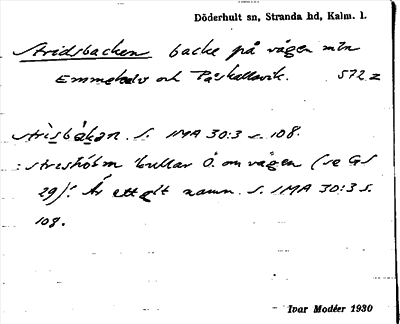 Döderhult sn, Stranda hd, Kalm. l.
Stridsbacken backe på vägen mln
Emmekalv och Påskallavik. 572 z
strisbákan. S. 1MA 30:3 s. 108.
: stresholm kullar Ö. om vägen (se GS
29)! Är ett glt namn. S. 1MA 30:3 s.
108.
Ivar Modéer 1930